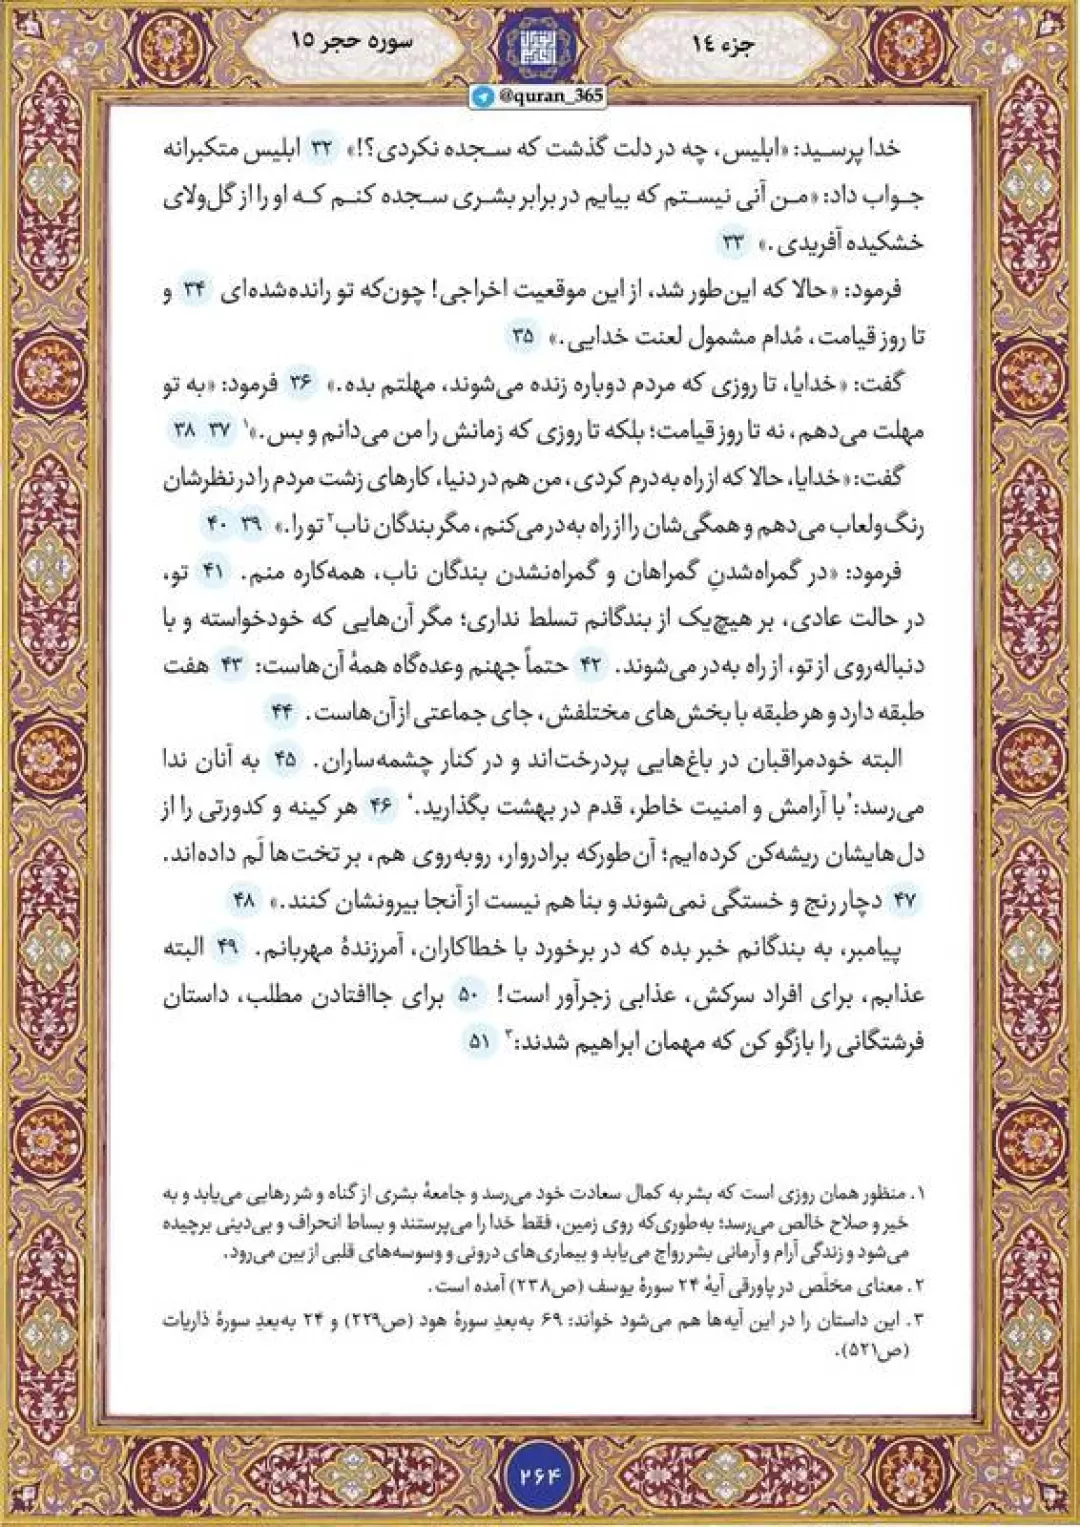 جزء ١٤
سوره حجر ١٥
@quran_365
خدا پرسید: «ابلیس، چه در دلت گذشت که سجده نکردی؟!» ۳۲ ابلیس متکبرانه
جواب داد: «من آنی نیستم که بیایم در برابر بشری سجده کنم که او را از گل‌ولای
خشکیده آفریدی.» ۳۳
فرمود: «حالا که این‌طور شد، از این موقعیت اخراجی! چون‌که تو رانده‌شده‌ای ۳۴ و
تا روز قیامت، مُدام مشمول لعنت خدایی.» ۳۵
گفت: «خدایا، تا روزی که مردم دوباره زنده می‌شوند، مهلتم بده.» ۳۶ فرمود: «به تو
مهلت می‌دهم، نه تا روز قیامت؛ بلکه تا روزی که زمانش را من می‌دانم و بس.»۱ ۳۷ ۳۸
گفت: «خدایا، حالا که از راه به‌درم کردی، من هم در دنیا، کارهای زشت مردم را در نظرشان
رنگ‌ولعاب می‌دهم و همگی‌شان را از راه به‌در می‌کنم، مگر بندگان ناب۲ تو را.» ۳۹ ۴۰
فرمود: «در گمراه‌شدنِ گمراهان و گمراه‌نشدن بندگان ناب، همه‌کاره منم. ۴۱ تو،
در حالت عادی، بر هیچ‌یک از بندگانم تسلط نداری؛ مگر آن‌هایی که خودخواسته و با
دنباله‌روی از تو، از راه به‌در می‌شوند. ۴۲ حتماً جهنم وعده‌گاه همهٔ آن‌هاست: ۴۳ هفت
طبقه دارد و هر طبقه با بخش‌های مختلفش، جای جماعتی از آن‌هاست. ۴۴
البته خودمراقبان در باغ‌هایی پردرخت‌اند و در کنار چشمه‌ساران. ۴۵ به آنان ندا
می‌رسد: ‘با آرامش و امنیت خاطر، قدم در بهشت بگذارید.’ ۴۶ هر کینه و کدورتی را از
دل‌هایشان ریشه‌کن کرده‌ایم؛ آن‌طورکه برادروار، روبه‌روی هم، بر تخت‌ها لَم داده‌اند.
۴۷ دچار رنج و خستگی نمی‌شوند و بنا هم نیست از آنجا بیرونشان کنند.» ۴۸
پیامبر، به بندگانم خبر بده که در برخورد با خطاکاران، آمرزندهٔ مهربانم. ۴۹ البته
عذابم، برای افراد سرکش، عذابی زجرآور است! ۵۰ برای جاافتادن مطلب، داستان
فرشتگانی را بازگو کن که مهمان ابراهیم شدند:۳ ۵۱
۱. منظور همان روزی است که بشر به کمال سعادت خود می‌رسد و جامعهٔ بشری از گناه و شر رهایی می‌یابد و به
خیر و صلاح خالص می‌رسد؛ به‌طوری‌که روی زمین، فقط خدا را می‌پرستند و بساط انحراف و بی‌دینی برچیده
می‌شود و زندگی آرام و آرمانی بشر رواج می‌یابد و بیماری‌های درونی و وسوسه‌های قلبی از بین می‌رود.
۲. معنای مخلَص در پاورقی آیهٔ ۲۴ سورهٔ یوسف (ص۲۳۸) آمده است.
۳. این داستان را در این آیه‌ها هم می‌شود خواند: ۶۹ به‌بعدِ سورهٔ هود (ص۲۲۹) و ۲۴ به‌بعدِ سورهٔ ذاریات
(ص۵۲۱).
۲۶۴